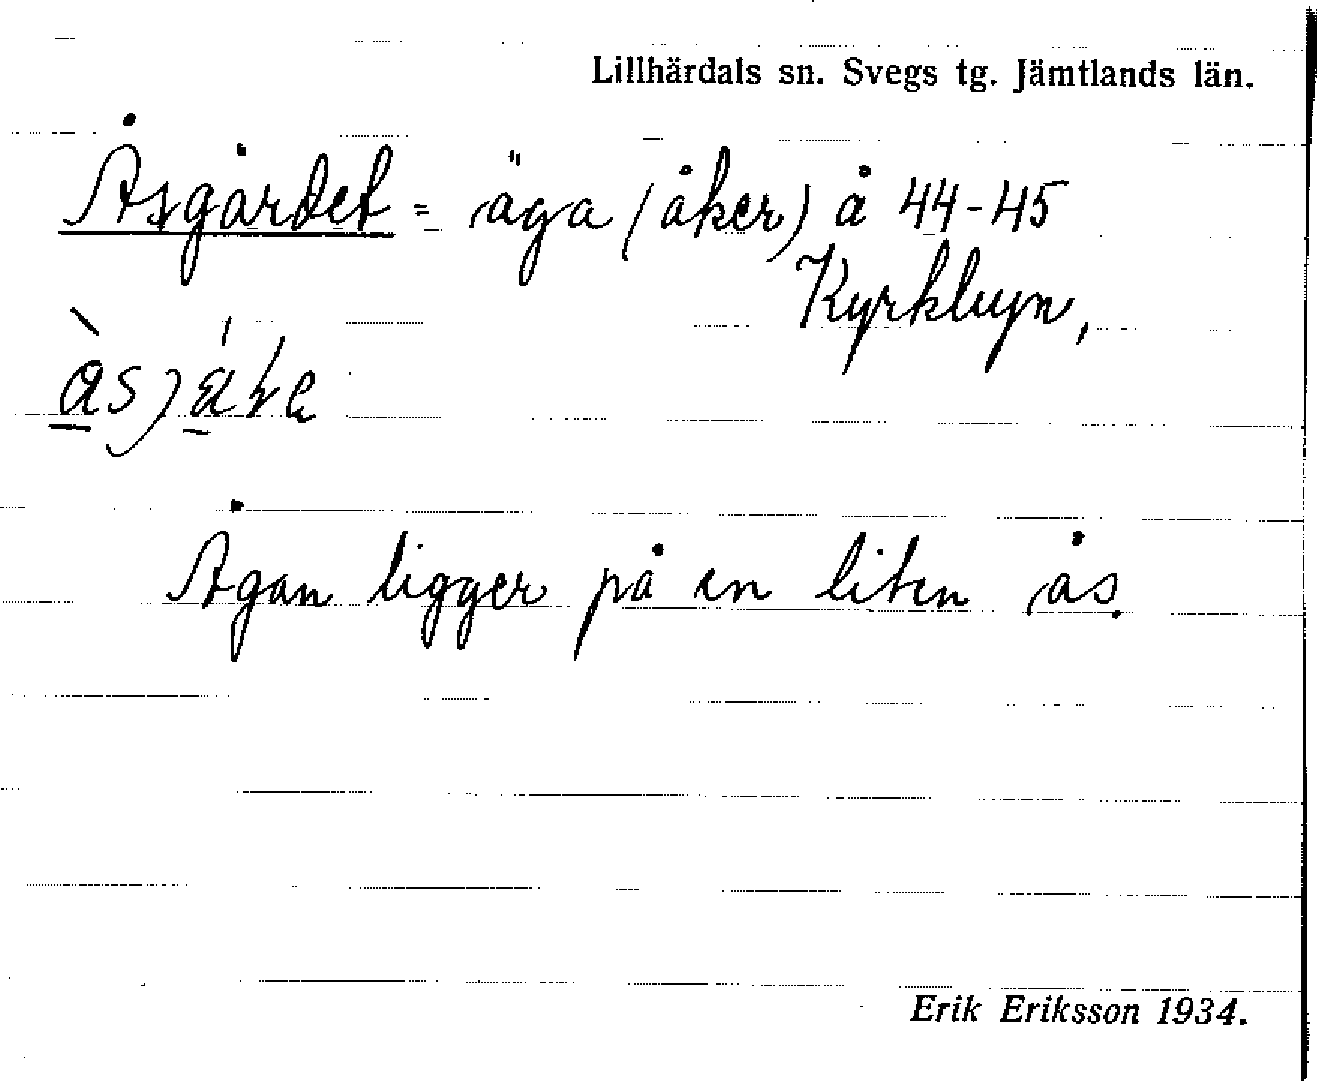 Lillhärdals sn. Svegs tg. Jämtlands län.
Åsgärdet = äga (åker) å 44-45
Kyrkbyn,
Ägan ligger på en liten ås.
Erik Eriksson 1934.